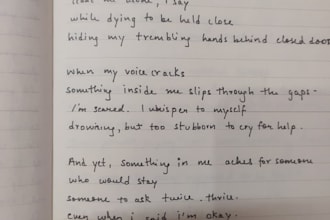 leave me alone, I say
while dying to be held close
hiding my trembling hands behind closed doors
when my voice cracks
something inside me slips through the gaps-
I'm scared. I whisper to myself
drowning, but too stubborn to cry for help.
And yet, something in me aches for someone
who would stay
someone to ask twice. thrice.
even when i said i'm okay.